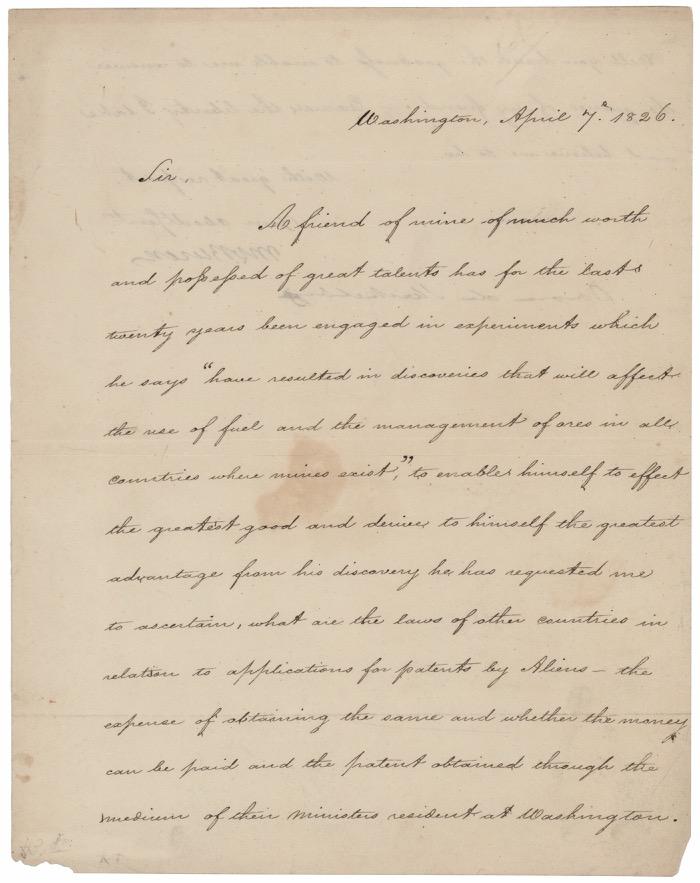 Washington, April 7th. 1826.
Sir,
A friend of mine of much worth
and possessed of great talents has for the last
twenty years been engaged in experiments which
he says "have resulted in discoveries that will affect
the use of fuel and the management of ores in all
countries where mines exist," to enable himself to effect
the greatest good and derive to himself the greatest
advantage from his discovery he has requested me
to ascertain, what are the laws of other countries in
relation to applications for patents by Aliens – the
expense of obtaining the same and whether the money
can be paid and the patent obtained through the
medium of their ministers resident at Washington.